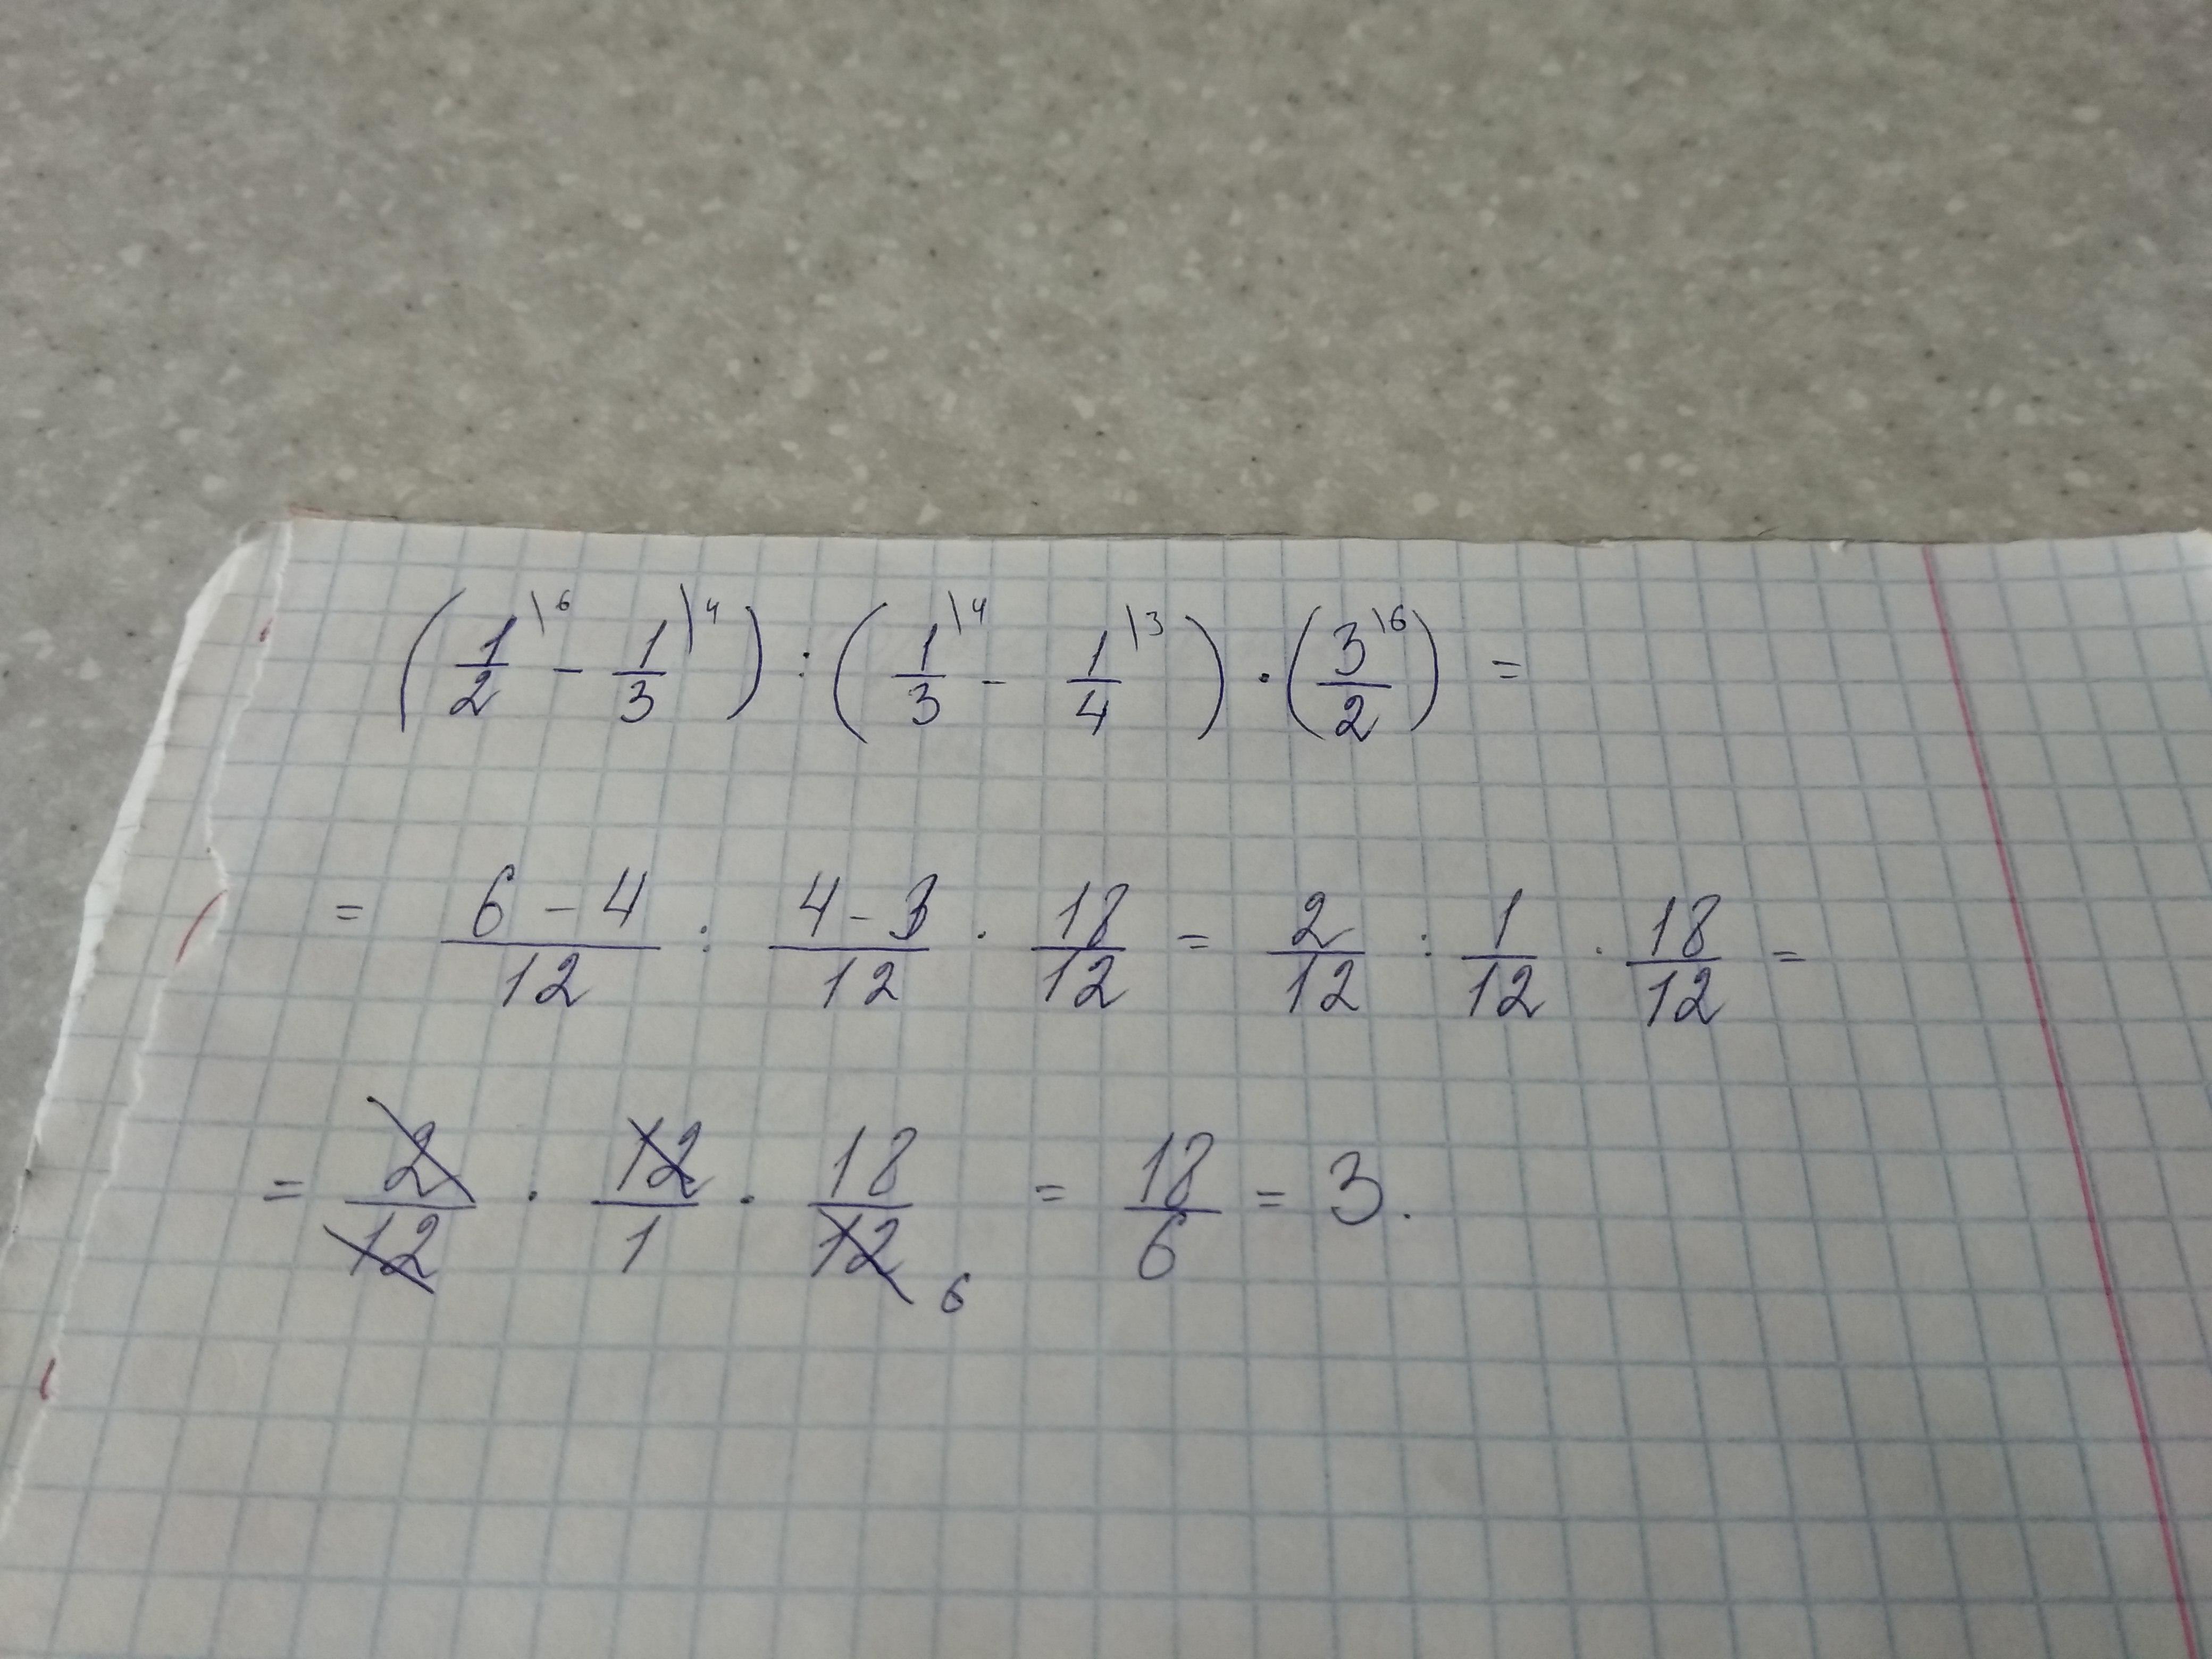 (1/2\6 - 1/3\4) : (1/3\4 - 1/4\3) · (3/2\6) =
= 6-4/12 : 4-3/12 · 18/12 = 2/12 : 1/12 · 18/12 =
= 2/12 · 12/1 · 18/12 6 = 18/6 = 3.